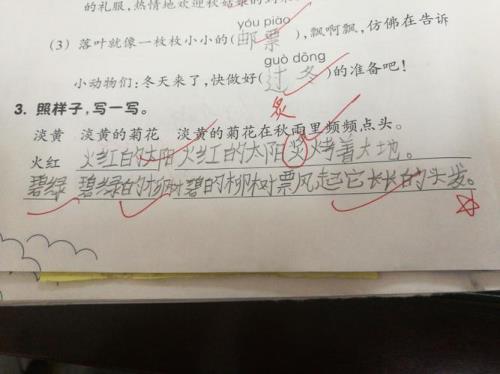 的礼服,热情地欢迎秋姑娘的到来
yóu piào
(3) 落叶就像一枚枚小小的(邮票),飘啊飘,仿佛在告诉
guò dōng
小动物们:冬天来了,快做好(过冬)的准备吧!
炙
3. 照样子,写一写。
淡黄 淡黄的菊花 淡黄的菊花在秋雨里频频点头。
火红 火红的太阳 火红的太阳烤着大地。
碧绿 碧绿的柳树 碧的柳树票风起它长长的头发。